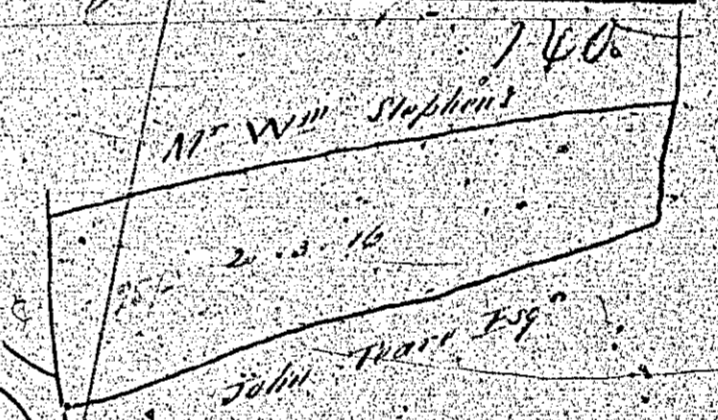 140
Mr Wm Stephens
2 . 3 . 16
John Esqr